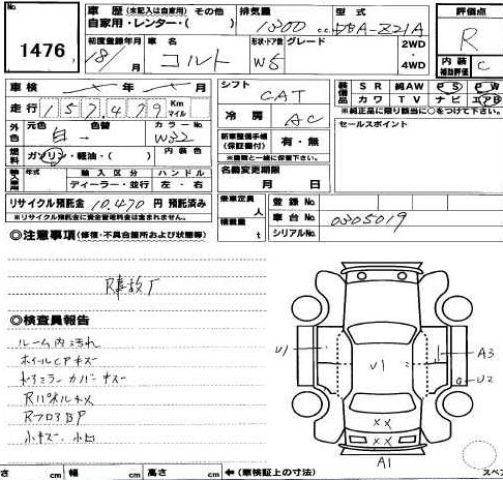 No.
1476
車歴(未記入は自家用) その他
自家用・レンター・( )
排気量
1300 cc
型式
DBA-Z21A
評価点
R
内装補助評価
C
初度登録年月
18/ 月
車名
コルト
形状・ドア数 グレード
W5
2WD
4WD
車検 年 月
走行 157,479 Km マイル
外色 元色 色替 カラーNo.
白 → W32
燃料 ガソリン・軽油・( ) 内装色
輸入車 年式 輸入区分 ハンドル
ディーラー・並行 左・右
リサイクル預託金 10,470 円 預託済み
※リサイクル預託金に資金管理料金は含まれません。
シフト
CAT
冷房
AC
新車整備手帳(保証書付) 有・無
※書類と一緒に保管下さい。
名義変更期限
月 日
乗車定員 人
積載量 t
装備品 SR 純AW PS PW
カワ TV ナビ エアB
※純正品に限り該当に○をつけて下さい。
セールスポイント
登録No.
車台No. 0305019
シリアルNo.
◎注意事項(修復・不具合箇所および状態等)
R事故厂
◎検査員報告
ルーム内汚れ
ホイルCPキズ
ドアミラーカバーキズ
RパネルキメX
RフロアBP
小キズ、小凹
U1
U1
A3
U2
XX
XX
A1
さ cm 幅 cm 高さ cm ←(車検証上の寸法)
スペ